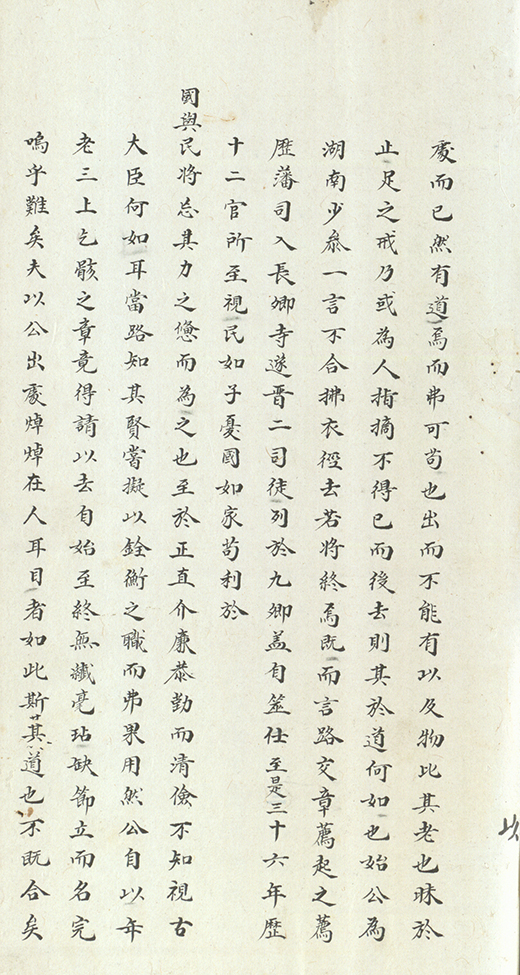 處而已然有道焉而弗可苟也出而不能有以及物比其老也昧於
止足之戒乃或為人指摘不得已而後去則其於道何如也始公為
湖南少叅一言不合拂衣徑去若將終焉既而言路交章薦起之薦
歷藩司入長卿寺遂晋二司徒列於九卿盖自筮仕至是三十六年歷
十二官所至視民如子憂國如家苟利於
國與民將忘其力之憊而為之也至於正直介廉恭勤而清儉不知視古
大臣何如耳當路知其賢嘗擬以銓衡之職而弗果用然公自以年
老三上乞骸之章竟得請以去自始至終無纖毫玷缺節立而名完
嗚乎難矣夫以公出處焯焯在人耳目者如此斯其道也不既合矣
以